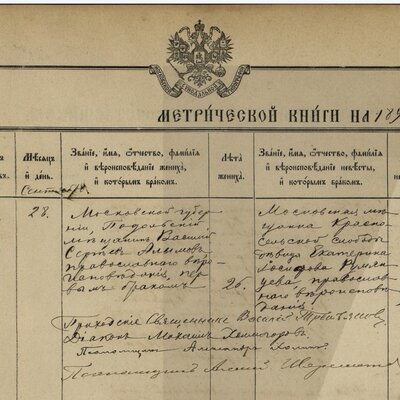 МЕТРИЧЕСКОЙ КНИГИ НА 189
Мѣсяцъ и день.
Званіе, имя, отчество, фамилія и вѣроисповѣданіе жениха, и которымъ бракомъ.
Лѣта жениха.
Званіе, имя, отчество, фамилія и вѣроисповѣданіе невѣсты, и которымъ бракомъ.
28.
Московской губер
ніи, Подольскій
мѣщанинъ Василій
Сергѣевъ
православнаго вѣро
исповѣданія, пер
вымъ бракомъ
26.
Московская мѣ
щанка Красно
сельской слободы
дѣвица Екатерина
православ
наго вѣроиспов
данія
Приходскій Священникъ Василій
Діаконъ Михаилъ
Псаломщикъ Александръ
Псаломщикъ